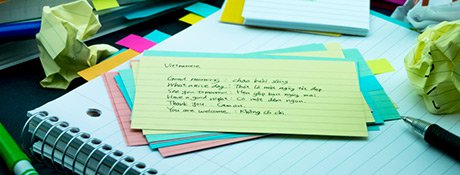 Vietnamese
Good morning : chào buổi sáng
What a nice day : Thật là một ngày tốt đẹp
See you tomorrow : Hẹn gặp bạn ngày mai
Have a good night : Có một đêm ngon.
Thank you : Cám ơn.
You are welcome : Không có chi.